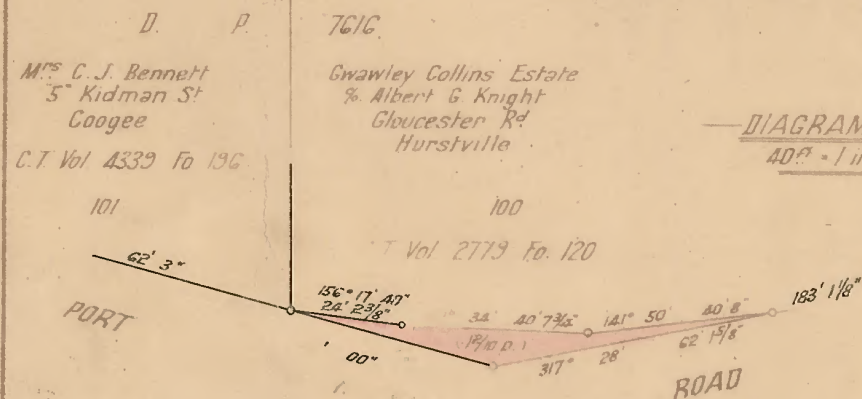 D. P. 7616.
Mrs C. J. Bennett
5 Kidman St
Coogee
C.T. Vol 4339 Fo 196
101
Gwawley Collins Estate
% Albert G. Knight
Gloucester Rd
Hurstville
100
Vol 2779 Fo. 120
DIAGRAM
40ft = 1 in
62' 3"
156° 17' 40"
24' 2 3/8"
34' 40' 7 3/4"
141° 50' 40' 8"
183' 1 1/8"
PORT
00"
317° 28' 62' 1 5/8"
ROAD